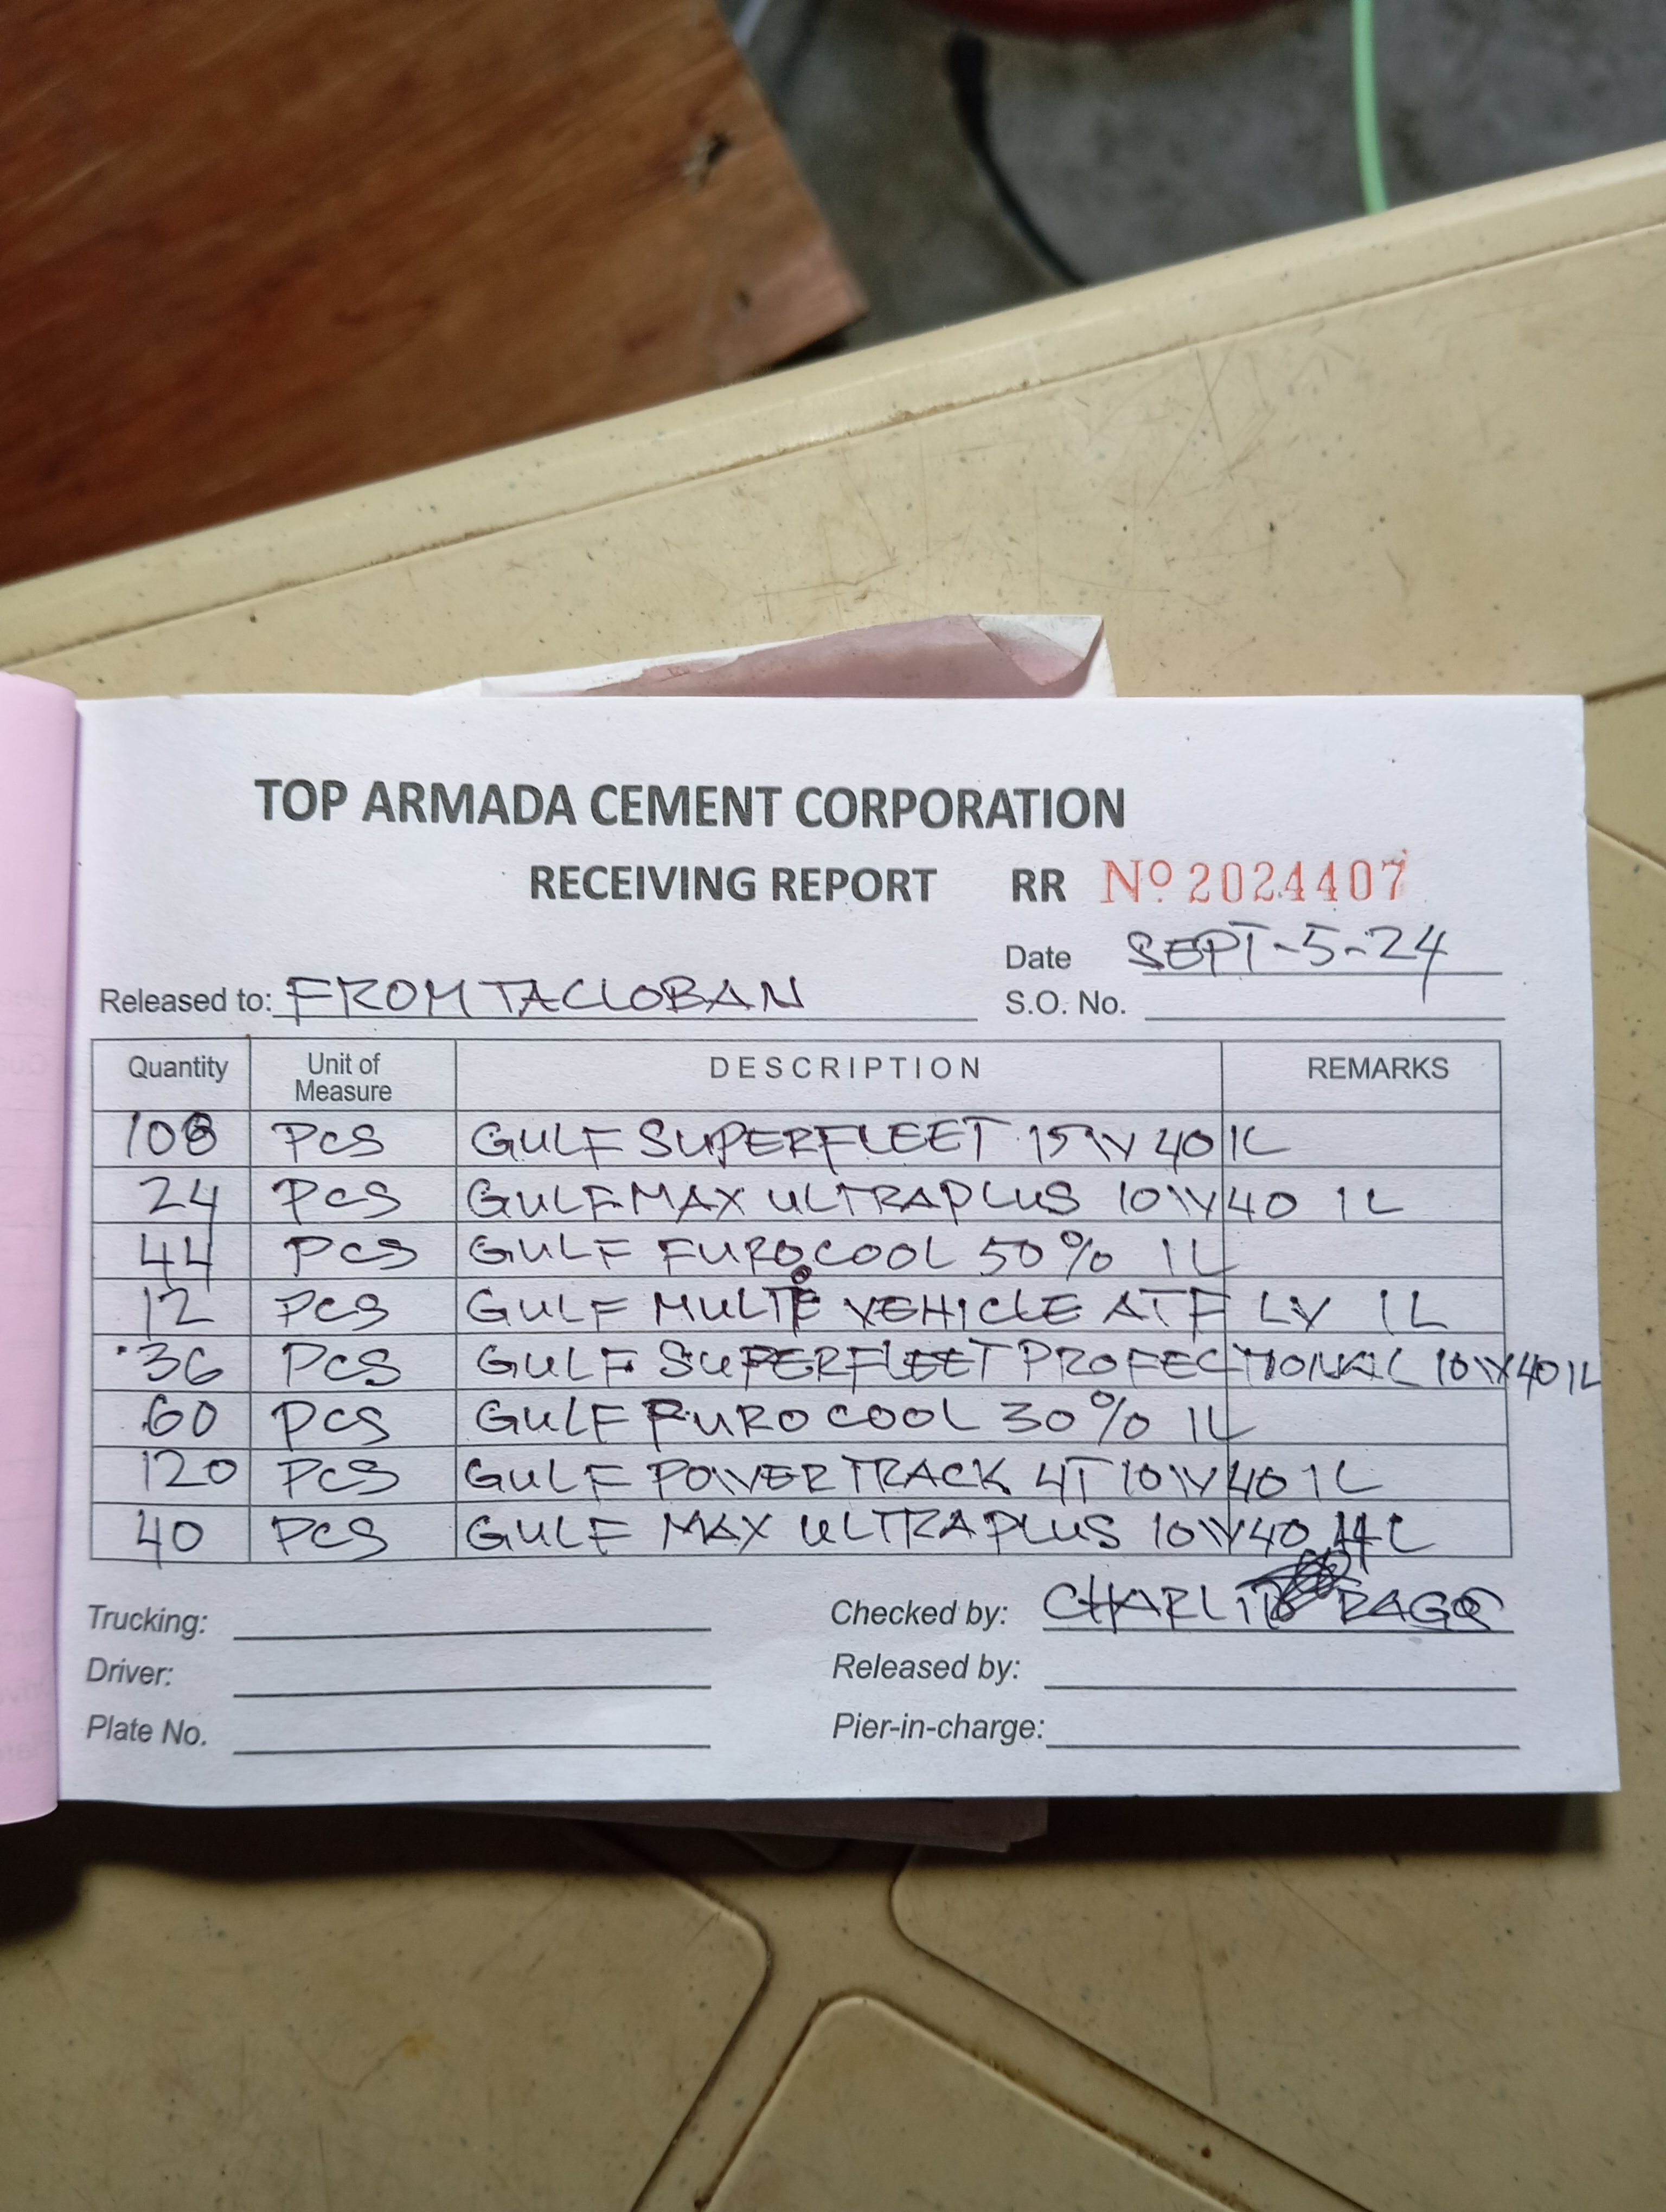 TOP ARMADA CEMENT CORPORATION
RECEIVING REPORT RR Nº 2024407
Date SEPT-5-24
Released to: FROM TACLOBAN S.O. No.
Quantity Unit of Measure DESCRIPTION REMARKS
108 PCS GULF SUPERFLEET 15W40 1L
24 PCS GULF MAX ULTRAPLUS 10W40 1L
44 PCS GULF EUROCOOL 50% 1L
12 PCS GULF MULTI VEHICLE ATF LV 1L
36 PCS GULF SUPERFLEET PROFECTIONAL 10W40 1L
60 PCS GULF EUROCOOL 30% 1L
120 PCS GULF POWERTRACK 4T 10W40 1L
40 PCS GULF MAX ULTRAPLUS 10W40 4L
Trucking: Checked by: CHARLITO
Driver: Released by:
Plate No. Pier-in-charge: